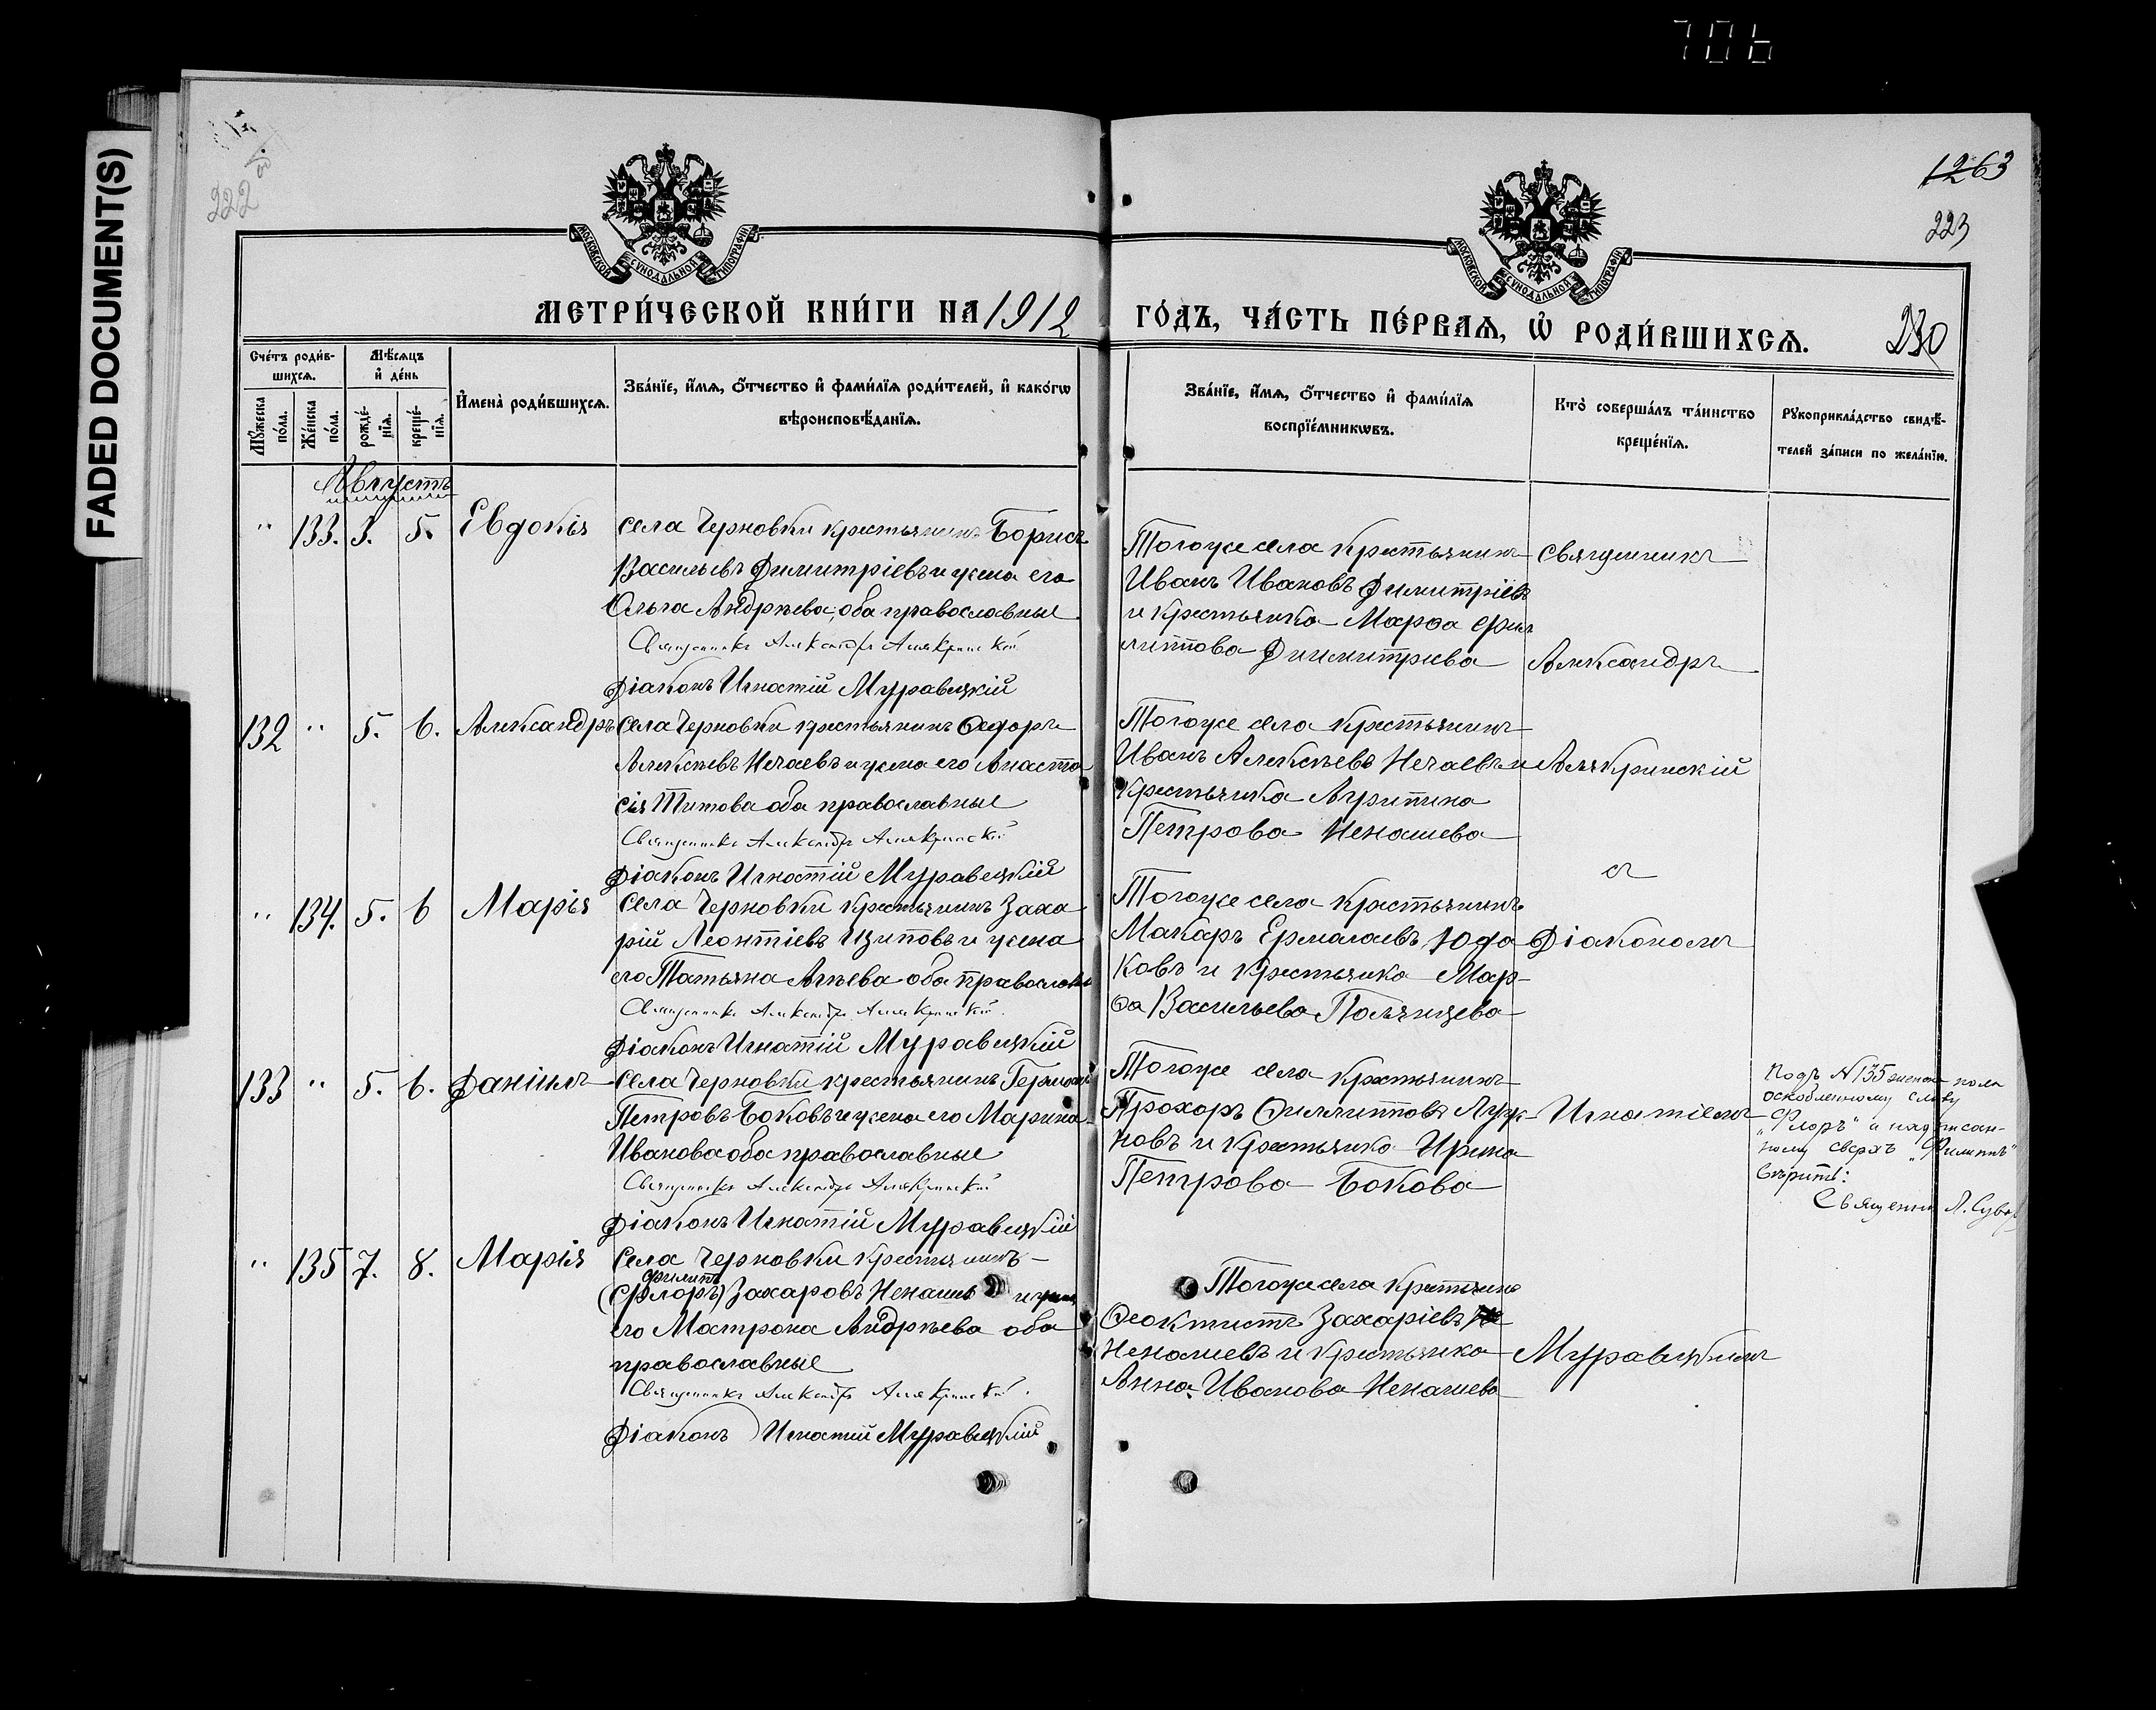 FADED DOCUMENT(S)
706
222
1263
223
МОСКОВСКОЙ СѴНОДАЛЬНОЙ ТИПОГРАФІИ
МОСКОВСКОЙ СѴНОДАЛЬНОЙ ТИПОГРАФІИ
МЕТРИ́ЧЕСКОЙ КНИ́ГИ НА 1912
ГО́ДЪ, ЧА́СТЬ ПЕ́РВАѦ, Ѡ҆ РОДИ́ВШИХСѦ. 230
Сче́тъ роди́в-
шихсѧ.
Мѣ́сѧцъ
и҆ де́нь
Мꙋ́жеска
по́ла.
Же́нска
по́ла.
рожде́-
нїѧ.
креще́-
нїѧ.
И҆мена̀ роди́вшихсѧ.
Зва́нїе, и҆́мѧ, ѻ҆́тчество и҆ фами́лїѧ роди́телей, и҆ како́гѡ
вѣроисповѣ́данїѧ.
Зва́нїе, и҆́мѧ, ѻ҆́тчество и҆ фами́лїѧ
воспрїе́мникѡвъ.
Кто̀ соверша́лъ та́инство
креще́нїѧ.
Рꙋкоприкла́дство свидѣ́-
телей за́писи по жела́нїю.
Августъ
" 133. 3. 5. Евдокія
села Черновки крестьянинъ Борисъ
Васильевъ Димитріевъ и жена его
Ольга Андрѣева, оба православные
Священникъ Александръ Алякринскій
Діаконъ Игнатій Муравецкій
Тогоже села крестьянинъ
Иванъ Ивановъ Димитріевъ
и крестьянка Марѳа Фил
липпова Димитріева
Священникъ
Александръ
132 " 5. 6. Александръ
села Черновки крестьянинъ Ѳедоръ
Алексѣевъ Нечаевъ и жена его Анаста
сія Титова оба православные
Священникъ Александръ Алякринскій
Діаконъ Игнатій Муравецкій
Тогоже села крестьянинъ
Иванъ Алексѣевъ Нечаевъ и
крестьянка Агрипина
Петрова Ненашева
Алякринскій
съ
" 134. 5. 6 Марія
Села Черновки крестьянинъ Заха
рій Леонтіевъ Изиповъ и жена
его Татьяна Агѣева оба православны
Священникъ Александръ Алякринскій.
Діаконъ Игнатій Муравецкій
Тогоже села крестьянинъ
Макаръ Ермолаевъ Юда
ковъ и крестьянка Мар-
ѳа Васильева Полянцева
Діакономъ
133 " 5. 6. Даніилъ
Села Черновки крестьянинъ Германъ
Петровъ Боковъ и жена его Марина
Иванова оба православные
Священникъ Александръ Алякринскій
Діаконъ Игнатій Муравецкій
Тогоже села крестьянинъ
Прохоръ Филлиповъ
новъ и крестьянка Ирина
Петрова Бокова
Игнатіемъ
Подъ №135 женск пола
оскобленному слову
„Флоръ" и надписан-
ному сверхъ „Филиппъ"
вѣрить:
Священникъ
" 135 7. 8. Марія
Села Черновки крестьянинъ-
Филиппъ
(Флоръ) Захаровъ Ненашевъ и жена
его Матрона Андрѣева оба
православные
Священникъ Александръ Алякринскій.
Діаконъ Игнатій Муравецкій
Тогоже села крестьянинъ
Ѳеоктистъ Захаріевъ
Ненашевъ и крестьянка
Анна Иванова Ненашева
Муравецкимъ